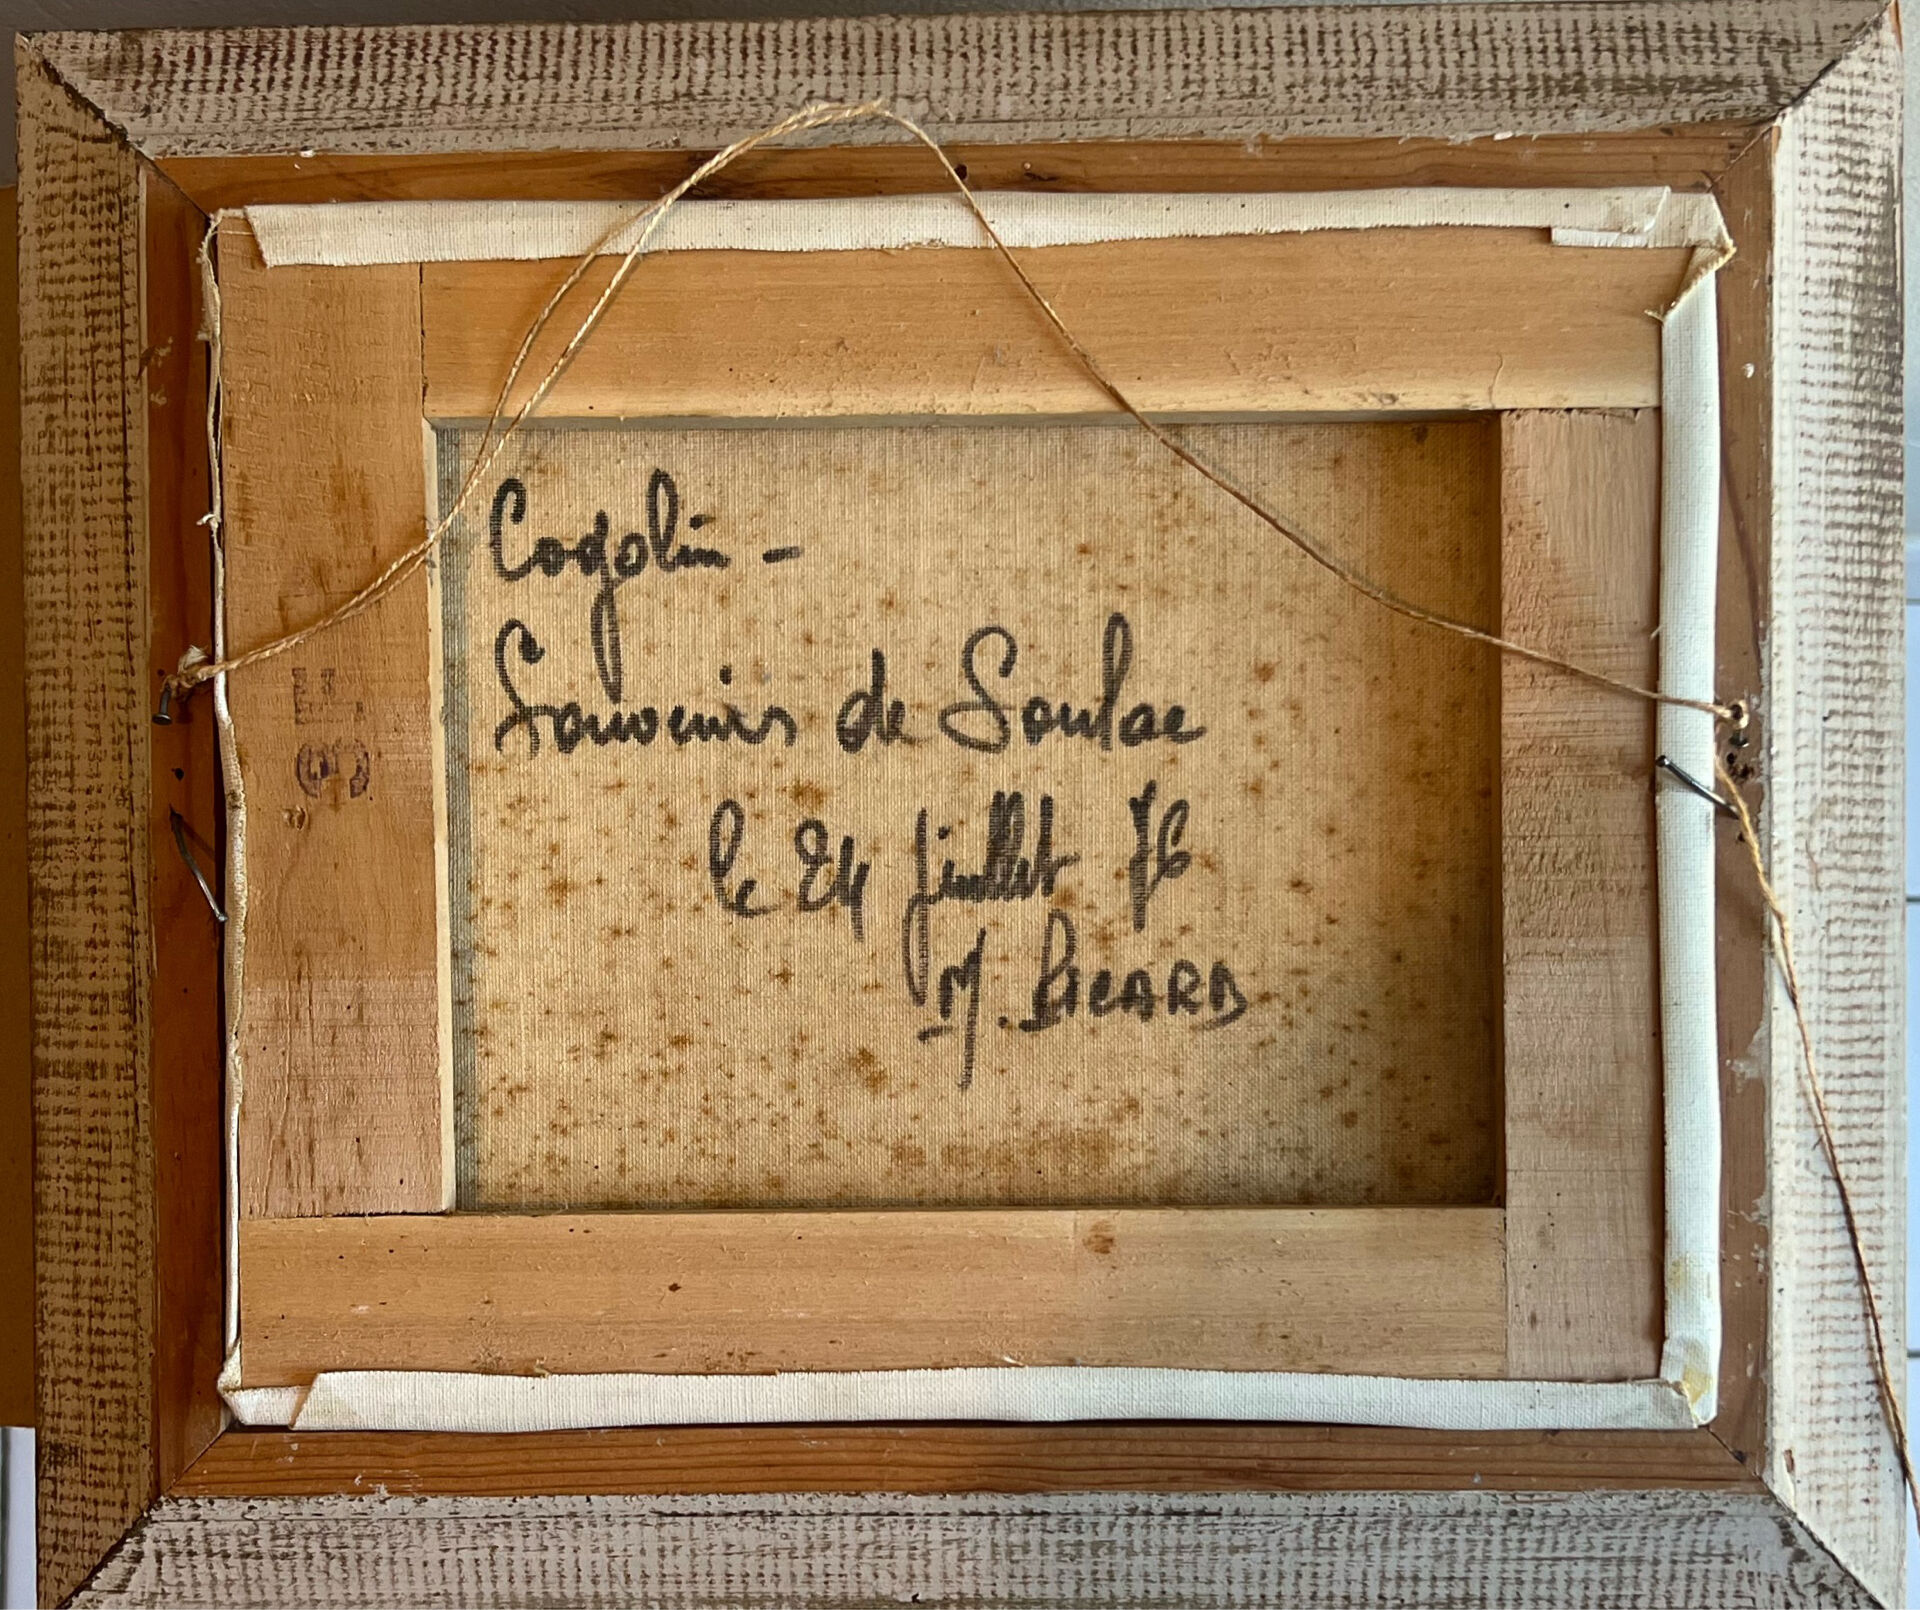 Cogolin -
Souvenirs de Soulac
le 24 juillet 76
M. PICARD